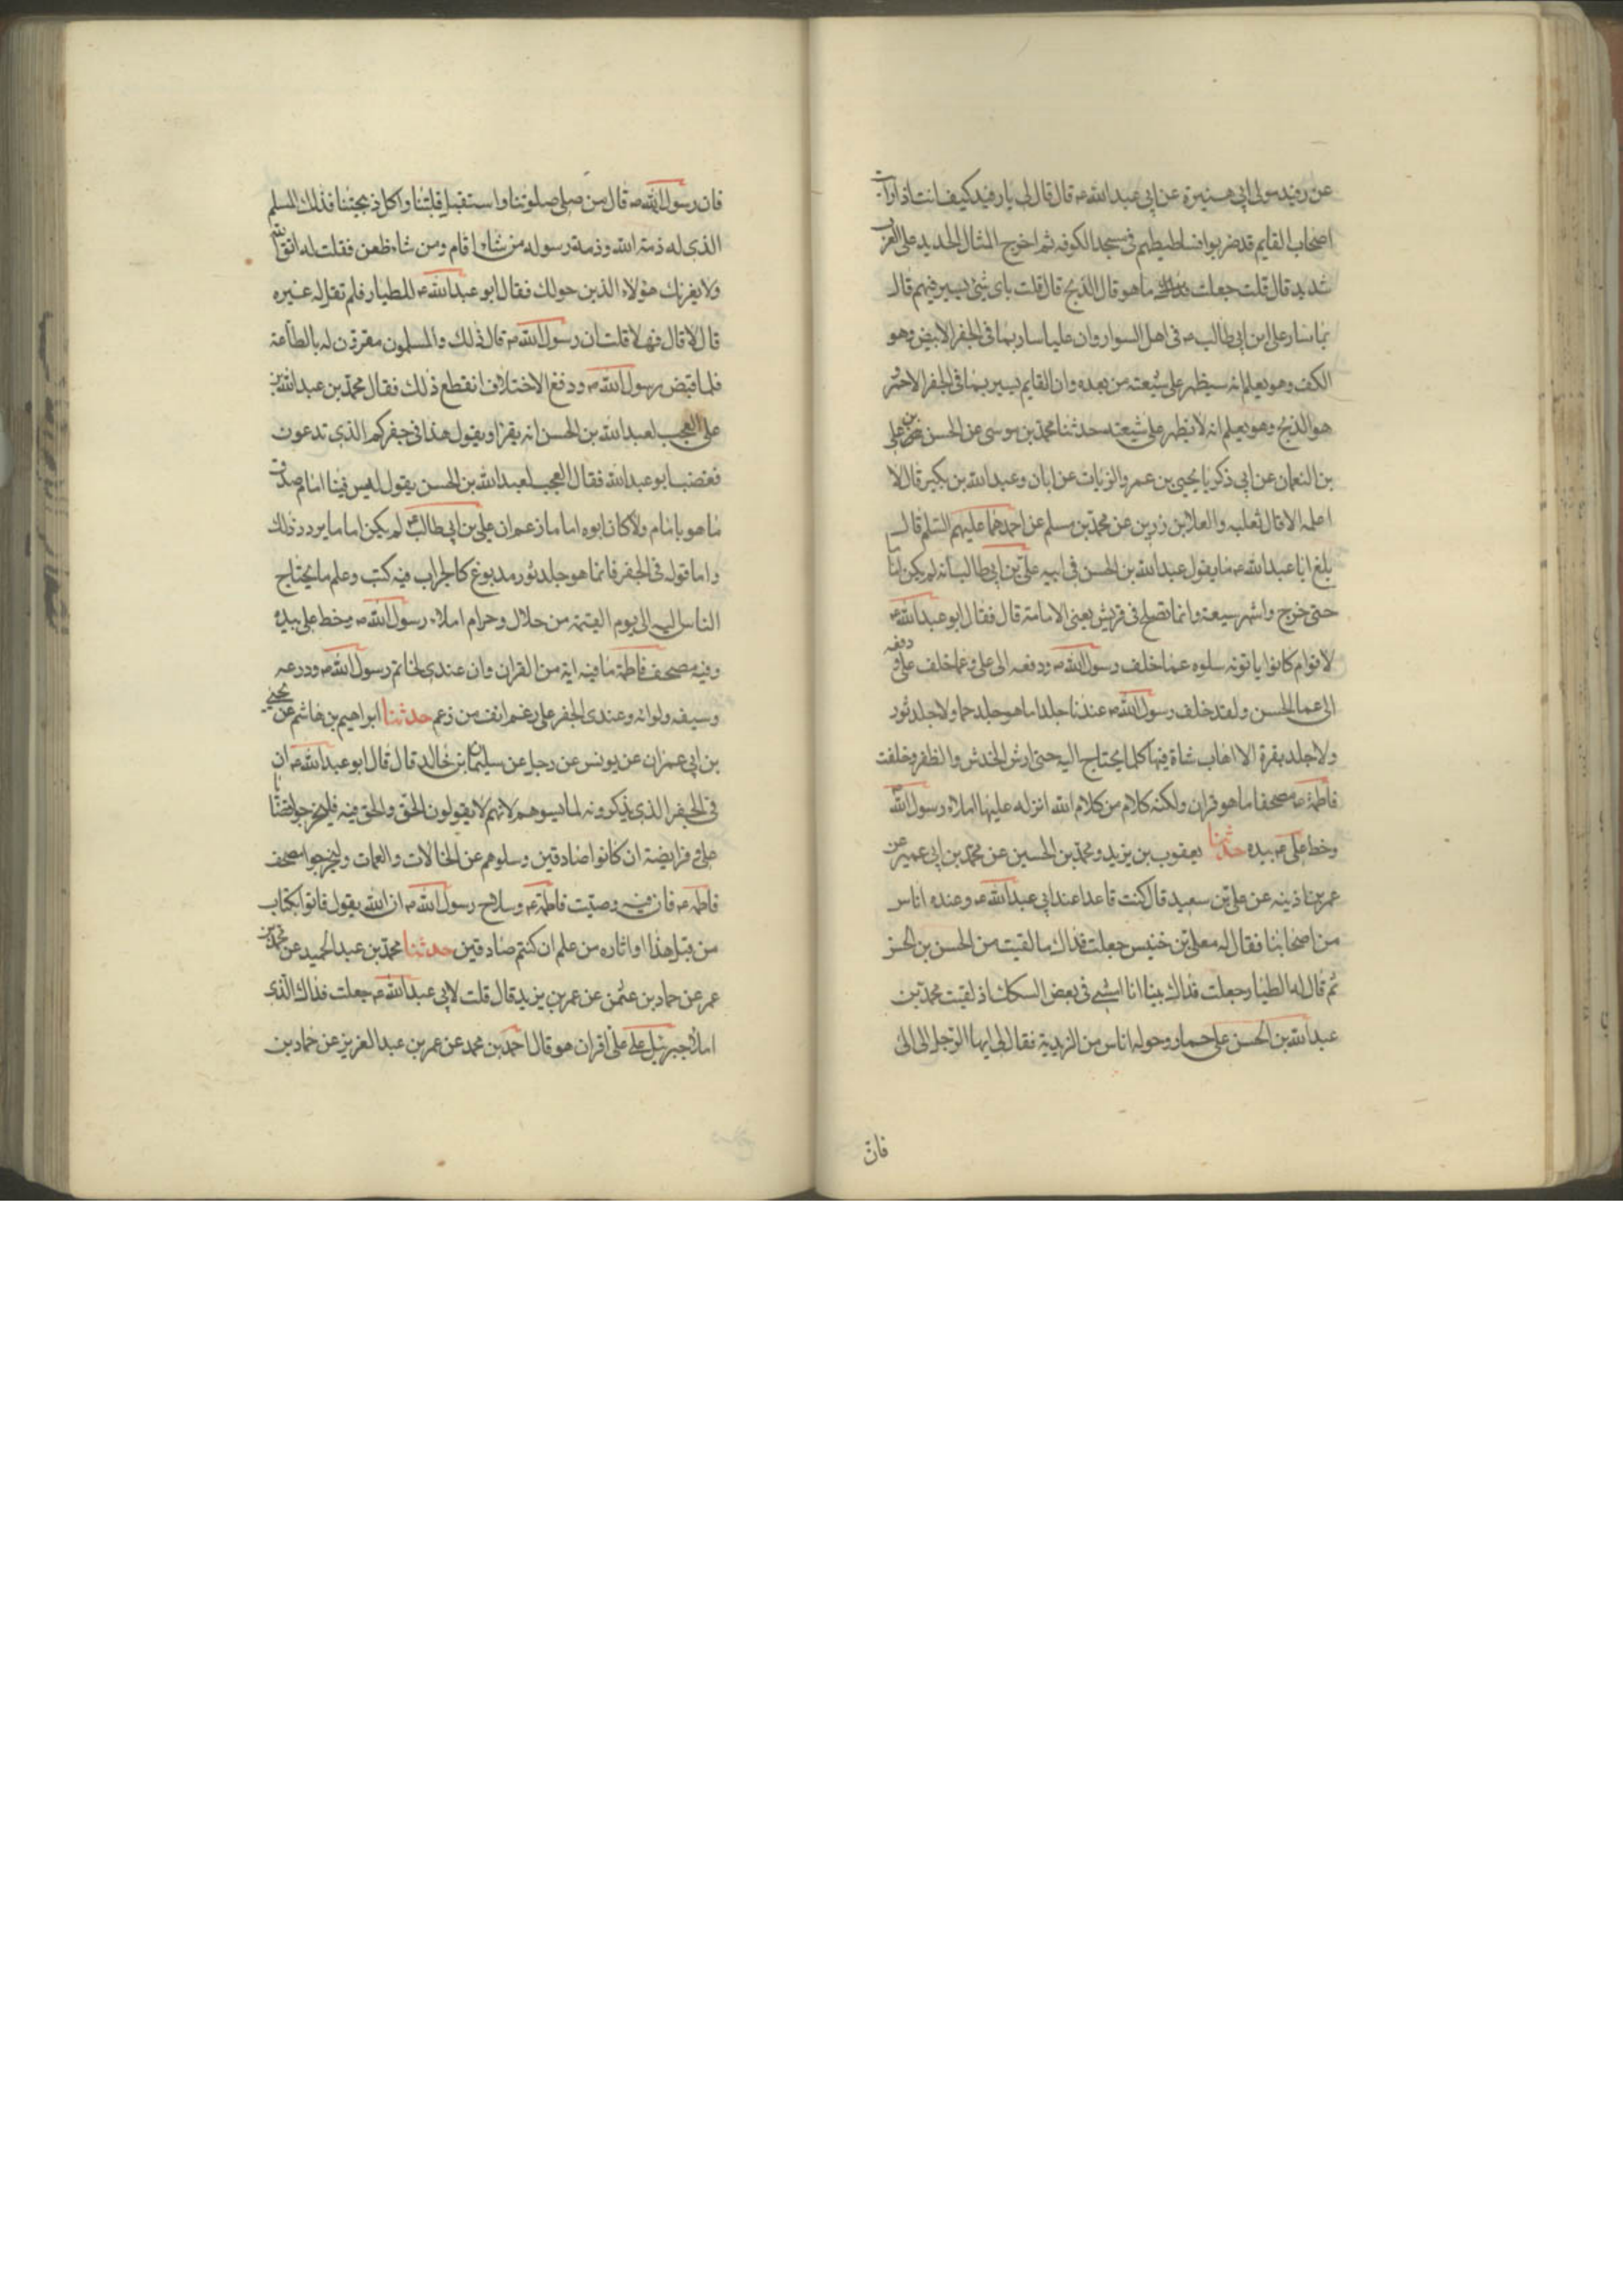 عن رفيد مولى ابي هبيرة عن ابي عبد الله ع قال قال لي يا رفيد كيف انت اذا رايت
اصحاب القايم قد ضربوا فساطيطهم في مسجد الكوفه ثم اخرج المثال الجديد على العرب
شديد قال قلت جعلت فداك ما هو قال الذبح قال قلت باى شئ يسير فيهم قال
بما سار على بن ابي طالب ع في اهل السواد وان عليا سار بما في الجفر الابيض وهو
الكف وهو يعلم انه سيظهر على شيعته من بعده وان القايم يسير بما في الجفر الاحمر
هو الذبح وهو يعلم انه لا يظهر على شيعته حدثنا محمد بن موسى عن الحسن بن على
بن النعمان عن ابي زكريا يحيى بن عمرو الزيات عن ابان وعبد الله بن بكير قال لا
اعلمه الا قال ثعلبه والعلا بن رزين عن محمد بن مسلم عن احدهما عليهم السلم قال
بلغ ابا عبد الله ع ما يقول عبد الله بن الحسن في ابيه علي بن ابي طالب انه لم يكن اماما
حتى خرج واشهر سيعه وانما تصلح في قريش يعنى الامامة قال فقال ابو عبد الله ع
لاقوام كانوا ياتونه سلوه عما خلف رسول الله ص ودفعه الى على وعما خلف على ودفعه
الى عما الحسن ولقد خلف رسول الله ص عندنا جلدا ما هو جلد حما ولا جلد ثور
ولا جلد بقرة الا اهاب شاة فيها كلما يحتاج اليه حتى ارش الخدش والظفر وخلفت
فاطمة ع مصحفا ما هو قران ولكنه كلام من كلام الله انزله عليها املاء رسول الله ص
وخط على ع بيده حدثنا يعقوب بن يزيد ومحمد بن الحسين عن محمد بن ابي عمير عن
عمر بن اذينه عن علي بن سعيد قال كنت قاعدا عند ابي عبد الله ع وعنده اناس
من اصحابنا فقال له معلى بن خنيس جعلت فداك ما لقيت من الحسن بن الحسن
ثم قال له الطيار جعلت فداك بينا انا امشي في بعض السكك اذ لقيت محمد بن
عبد الله بن الحسن على حمار وحوله اناس من الزيدية فقال لى ايها الرجل الى الى
فان
فان رسول الله ص قال من صلى صلوتنا واستقبل قبلتنا واكل ذبيحتنا فذلك المسلم
الذى له ذمة الله وذمة رسوله من شاء اقام ومن شاء ظعن فقلت له اتق الله
ولا يغرنك هؤلاء الذين حولك فقال ابو عبد الله ع للطيار فلم تقل له غيره
قال لا قال فهلا قلت ان رسول الله ص قال ذلك والمسلمون مقرون له بالطاعة
فلما قبض رسول الله ص ودفع الاختلاف انقطع ذلك فقال محمد بن عبد الله بن
على العجب لعبد الله بن الحسن انه يهزا ويقول هذا في جفركم الذى تدعون
فغضب ابو عبد الله فقال العجب لعبد الله بن الحسن يقول ليس فينا امام صدق
ما هو بامام ولا كان ابوه اماما زعم ان علي بن ابي طالب ع لم يكن اماما يردد ذلك
واما قوله في الجفر فانما هو جلد ثور مدبوغ كالجراب فيه كتب وعلم ما يحتاج
الناس ليه الى يوم القيمة من حلال وحرام املاء رسول الله ص وخط على بيده
وفيه مصحف فاطمة ما فيه اية من القران وان عندى لخاتم رسول الله ص ودرعه
وسيفه ولوائه وعندى الجفر على رغم انف من زعم حدثنا ابراهيم بن هاشم عن يحيى
بن ابي عمران عن يونس عن رجل عن سليمان بن خالد قال قال ابو عبد الله ع ان
في الجفر الذى يذكرونه لما يسوهم لانهم لا يقولون الحق والحق فيه فليخرجوا قضايا
على و فرايضه ان كانوا صادقين وسلوهم عن الخالات والعمات وليخرجوا مصحف
فاطمه ع فان فيه وصيت فاطمة ع وسلاح رسول الله ص ان الله يقول فاتوا بكتاب
من قبل هذا او اثاره من علم ان كنتم صادقين حدثنا محمد بن عبد الحميد عن محمد بن
عمر عن حماد بن عثمن عن عمر بن يزيد قال قلت لابي عبد الله ع جعلت فداك الذى
املا جبرئيل على على اقران هو قال احمد بن محمد عن عمر بن عبد العزيز عن حماد بن